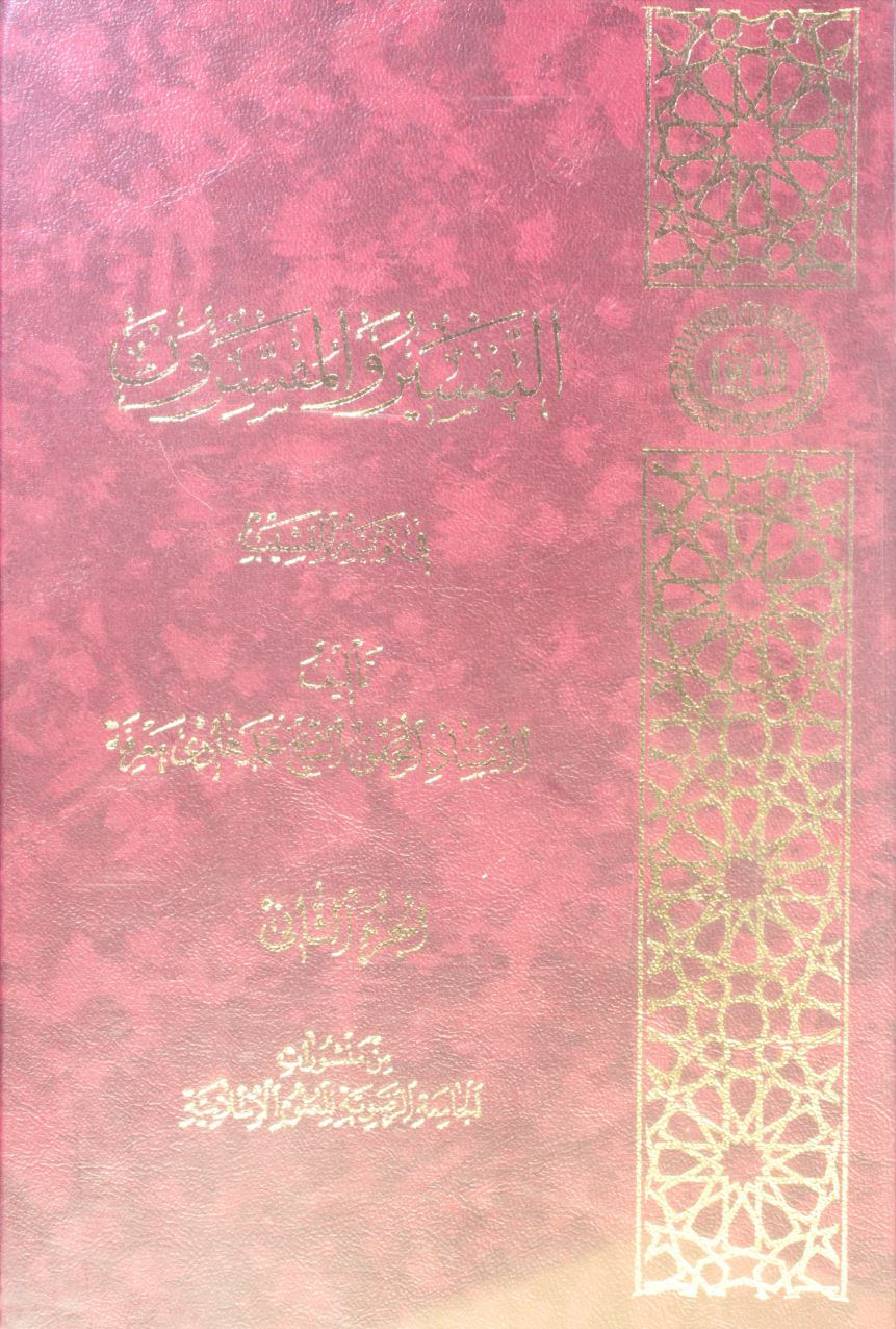 التَّفْسِيرُ وَالْمُفَسِّرُونَ
في ثَوبِهِ القَشِيبِ
تَأْلِيفُ
الأُسْتَاذِ المُحَقِّقِ الشَّيْخِ مُحَمَّد هَادِي مَعْرِفَة
الجُزْءُ الثَّانِي
مِنْ مَنْشُورَاتِ
الجَامِعَةِ الرَّضَوِيَّةِ لِلْعُلُومِ الإِسْلامِيَّةِ